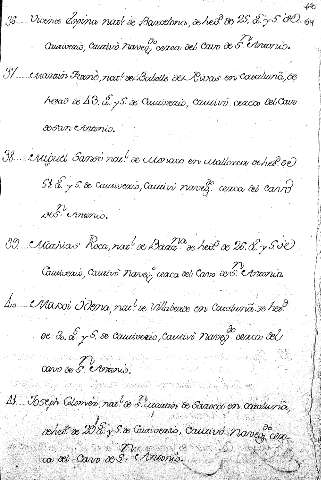 36... Vicente Espina natˡ de Barzelona, de hedᵈ de 25 aˢ y 5 de
Cautiverio, Cautivó Navegᵈᵒ cerca del Cavo de Sⁿ Antonio.
natˡ de
en Cataluña, de
hedad de 43 aˢ y 5 de Cautiverio, cautivó cerca del Cavo
de San Antonio.
38... Miguel natˡ de en Mallorca de hedᵈ de
51 aˢ y 5 de Cautiverio, Cautivó navegᵈᵒ cerca del cavo
de Sⁿ Antonio.
39... Mathias Roca, natˡ de Barzⁿᵃ de hedᵈ de 26 aˢ y 5 de
Cautiverio, Cautivó Navegᵈᵒ cerca del Cavo de Sⁿ Antonio
natˡ de en Cataluña de hedᵈ
de aˢ y 5 de cautiverio, cautivó Navegᵈᵒ cerca del
cavo de Sⁿ Antonio.
41... Joseph natˡ de Sⁿ en Cataluña,
de hedᵈ de 20 aˢ y 5 de Cautiverio, Cautivó Navegᵈᵒ cer-
ca del Cavo de Sⁿ Antonio.